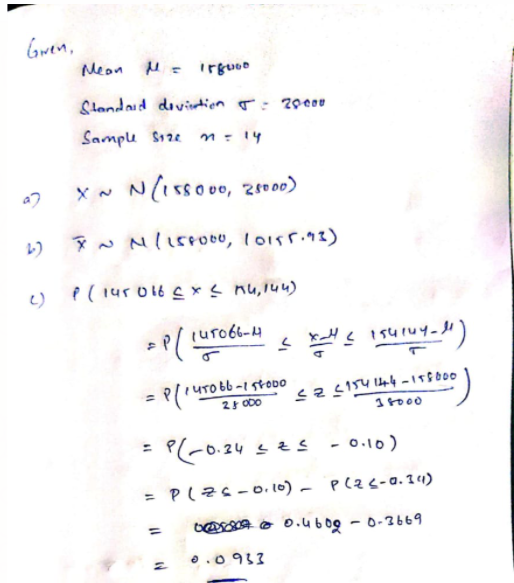 Given,
Mean μ = 158000
Standard deviation σ = 28000
Sample size n = 14
a) X ~ N(158000, 28000)
b) x̄ ~ N(158000, 10155.93)
c) P(145066 ≤ x ≤ 154,144)
= P(145066-μ/σ ≤ x-μ/σ ≤ 154144-μ/σ)
= P(145066-158000/28000 ≤ z ≤ 154144-158000/38000)
= P(-0.34 ≤ z ≤ -0.10)
= P(z ≤ -0.10) - P(z ≤ -0.34)
= 0.4602 - 0.3669
= 0.0933